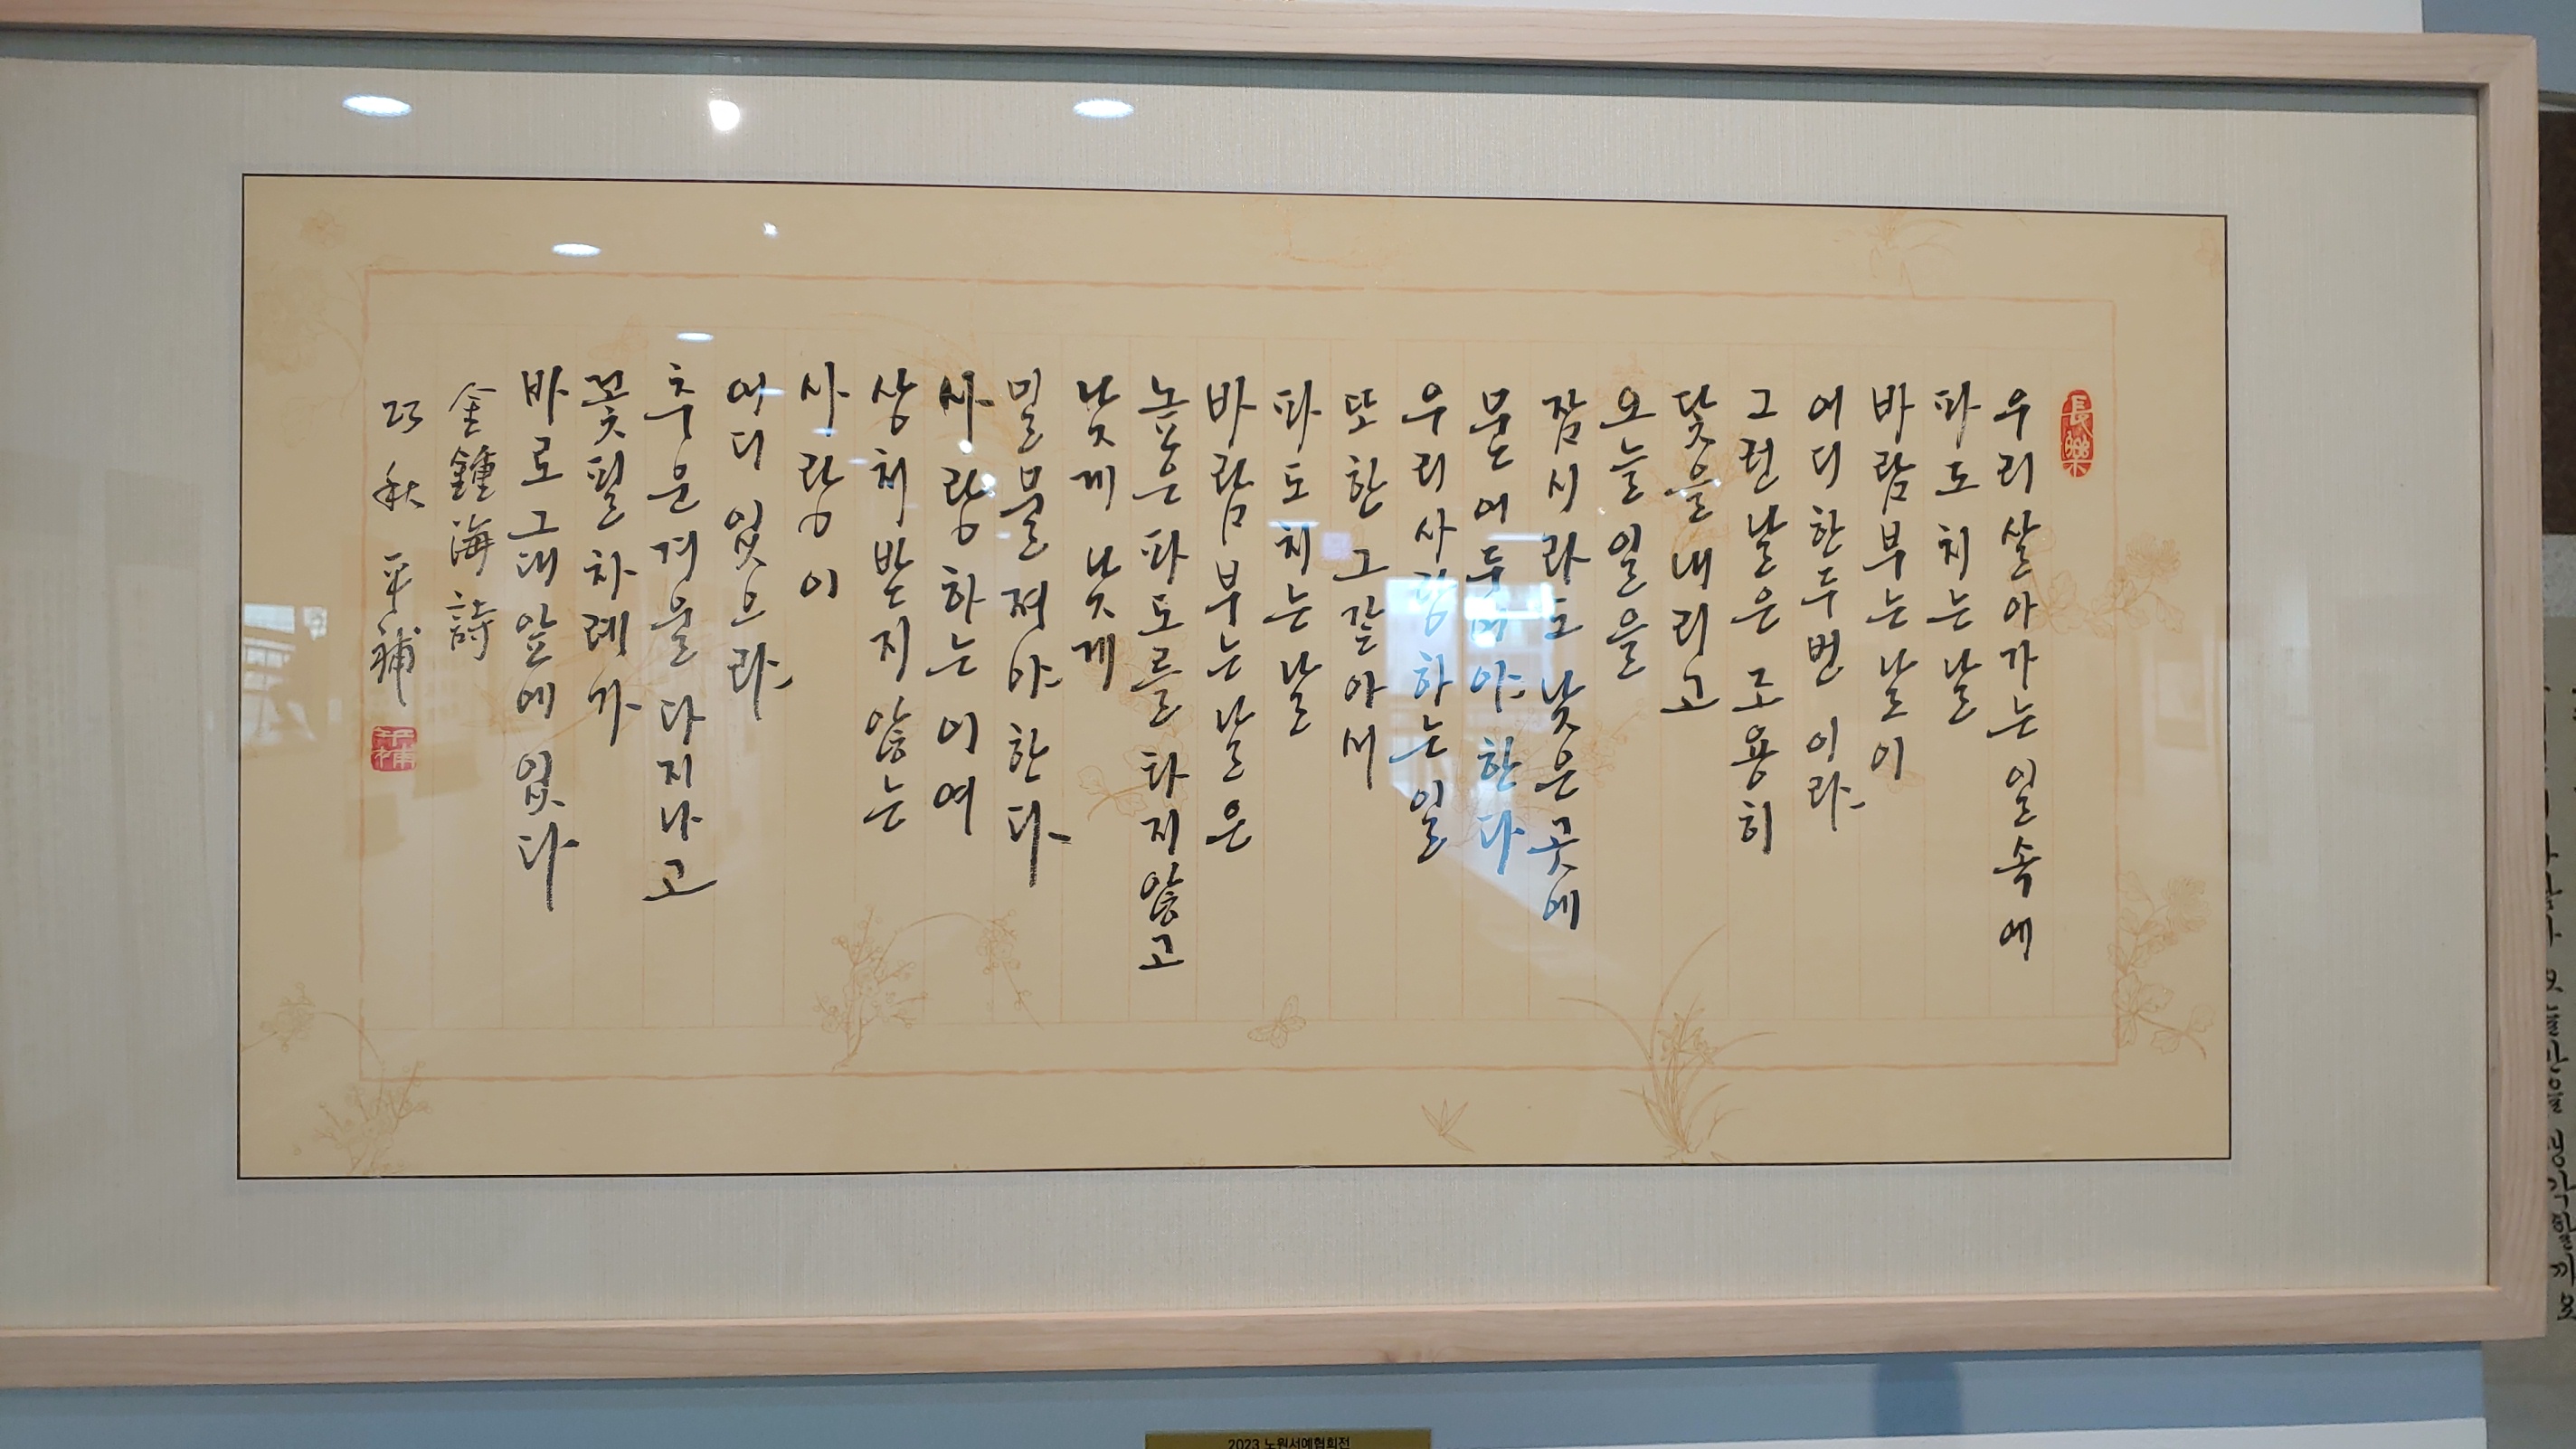 長樂
우리 살아가는 일 속에
파도 치는 날
바람 부는 날이
어디 한두번 이랴
그런 날은 조용히
닻을 내리고
오늘 일을
잠시라도 낮은 곳에
묻어두어야 한다
우리 사랑하는 일
또한 그 같아서
파도 치는 날
바람 부는 날은
높은 파도를 타지 않고
낮게 낮게
밀물져야 한다
사랑하는 이여
상처받지 않는
사랑이
어디 있으랴
추운 겨울 다 지나고
꽃필 차례가
바로 그대 앞에 있다
金鍾海 詩
23 秋 平補
平補
2023 노원서예협회전
생각할까요